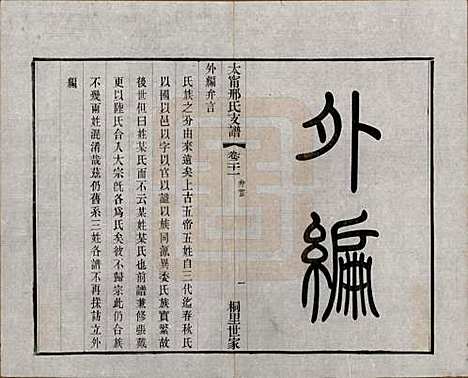 外編
太甯邢氏支譜
卷二十一
弁言
一
桐里世家
外編弁言
氏族之分由來遠矣上古五帝五姓自三代迄春秋氏
以國以邑以字以官以謚以族同源異委氏族實繁故
後世但曰姓某氏而不云某姓某氏也前譜兼修張戴
更以陸氏合入大宗旣各為氏矣彼不歸宗此仍合族
不幾甭姓混淆哉茲仍舊系三姓各譜不再採訪立外
編